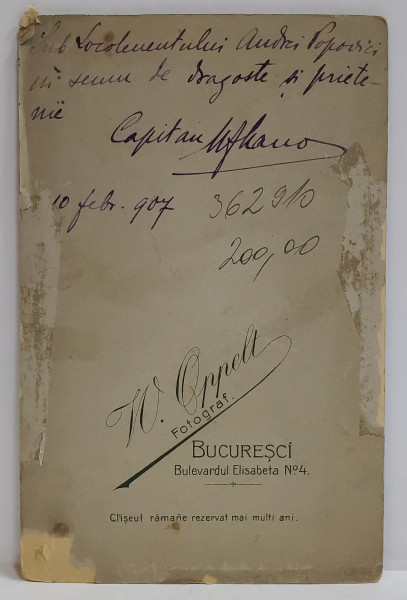 Sub Locotenentului Andrei Popovici
în semn de dragoste și priete-
nie
Capitan
10 febr. 907 362910
200,00
W. Oppelt
Fotograf.
BUCUREȘCI
Bulevardul Elisabeta No 4.
Clișeul rămâne rezervat mai mulți ani.